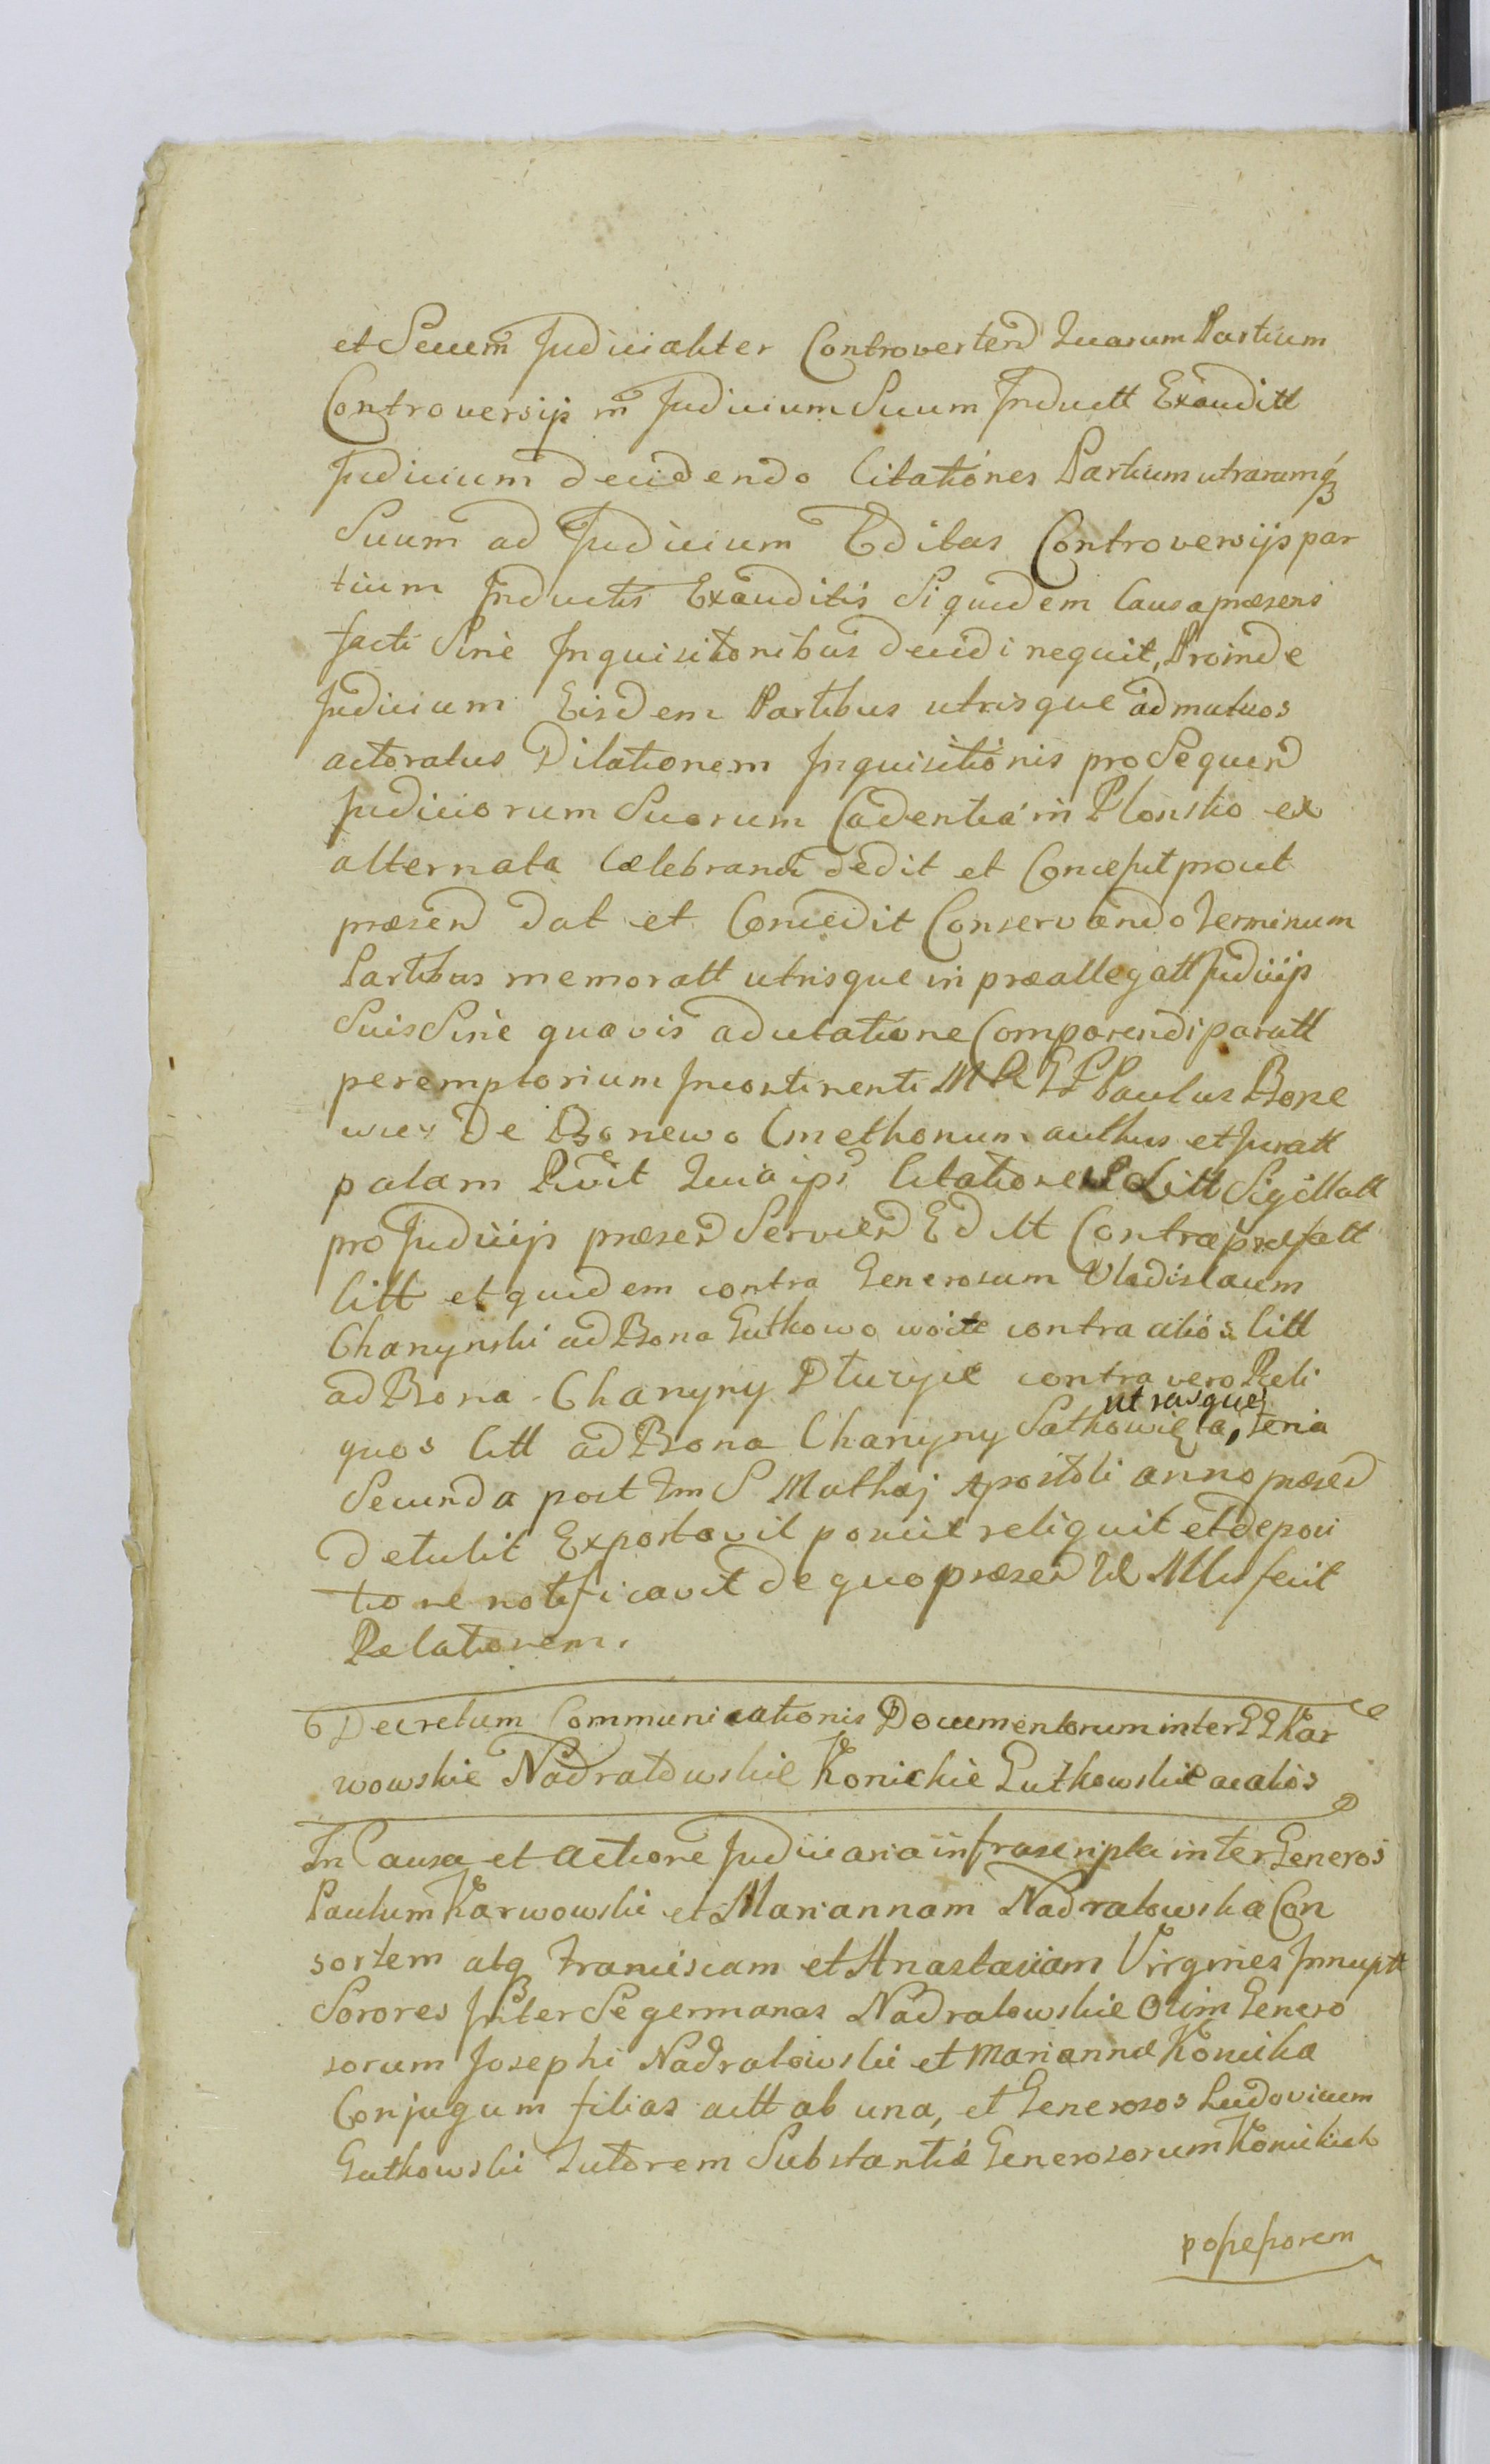 et Secum Judicialiter Controverten Quarum Partium
Controversijs in Judicium Suum Inductt Exauditt
Judicium decidendo Citationes Partium utrarumq
Suum ad Judicium Editas Controversijs par
tium Inductis Exauditis Siquidem Causa præsens
facti Sine Inquisitionibus decidi nequit, Proinde
Judicium Eisdem Partibus utrisque ad mutuos
actoratus Dilationem Inquisitionis pro Sequen
Judiciorum Suorum Cadentia in Plonsko ex
alternata Cælebrandi dedit et Concessit prout
præsen dat et Concedit Conservando Terminum
Partibus memoratt utrisque in præallegatt Judicijs
Suis Sine quavis adcitatione Comparendi paratt
peremptorium Incontinenti M R GG Paulus Bone
wicz De Bonewo Cmethonum authus et Juratt
palam Rvit Quia ipse Citationes Litt Sigillatt
pro Judicijs præsen Servien Editt Contra præfatt
Citt et quidem contra Generosum Vladislaum
Chanynski ad Bona Gutkowo woite contra alios Citt
ad Bona Chanyny Dłuzyie contra vero Reli
quos Citt ad Bona Chanyny Satkowięta, utrasque feria
Secunda post Fm S Mathæj Apostoli anno præsen
detulit Exportavit posuit reliquit et de posi
tione notificavit de quo præsen Ul Mlis fecit
Relationem.
Decretum Communicationis Documentorum inter GG Kar
wowskie Nadratowskie Konickie Gutkowskie ac alios
In Causa et actione Judiciaria infrascripta inter Generos
Paulum Karwowski et Mariannam Nadratowska Con
sortem atq Franciscam et Anastasiam Virgines Innuptt
Sorores Inter Se germanas Nadratowskie Olim Genero
sorum Josephi Nadratowski et Mariannæ Konicka
Conjugum filias actt ab una, et Generosos Ludovicum
Gutkowski Tutorem Substantiæ Generosorum Konickich
possessorem